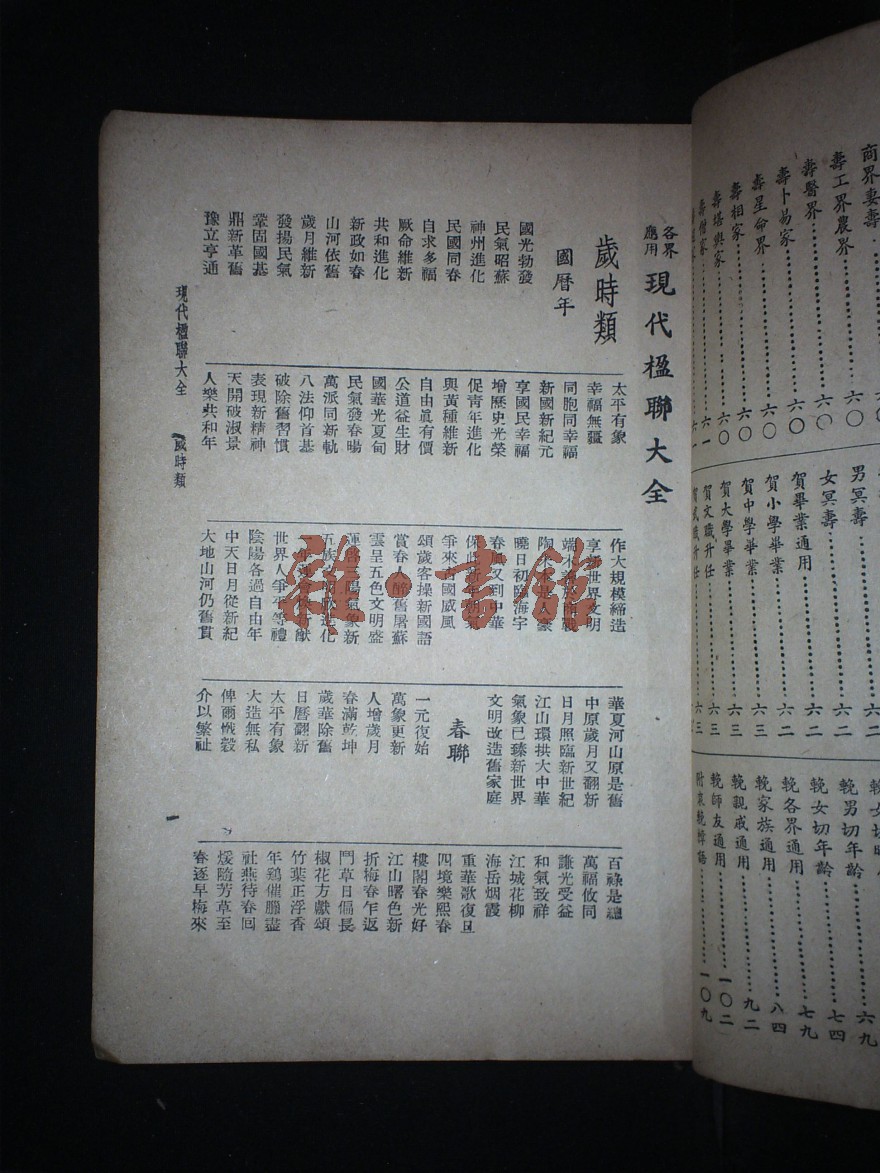 商界妻壽
壽工界農界
壽醫界
壽卜易家
壽星命界
壽相家
壽堪輿家
壽僧家
六〇
六〇
六〇
六〇
六〇
六一
男冥壽
女冥壽
賀畢業通用
賀小學畢業
賀中學畢業
賀大學畢業
賀文職升任
賀武職升任
六二
六二
六二
六二
六三
六三
六三
輓男切年齡
輓女切年齡
輓各界通用
輓家族通用
輓親戚通用
輓師友通用
六九
七四
七九
八四
九二
一〇二
一〇九
各界應用
現代楹聯大全
歲時類
國曆年
國光勃發
民氣昭蘇
神州進化
民國同春
自求多福
厥命維新
共和進化
新政如春
山河依舊
歲月維新
發揚民氣
鞏固國基
鼎新革舊
豫立亨通
太平有象
幸福無疆
同胞同幸福
新國新紀元
享國民幸福
增歷史光榮
促青年進化
與黃種維新
自由眞有價
公道益生財
國華光夏甸
民氣發春暘
萬派同新軌
八法仰首基
破除舊習慣
表現新精神
天開破淑景
人樂共和年
作大規模締造
享新世界文明
曉日初臨海宇
春風又到中華
頌歲客操新國語
賞春人醉舊屠蘇
雲呈五色文明盛
世界人爭平等禮
陰陽各過自由年
中天日月從新紀
大地山河仍舊貫
華夏河山原是舊
中原歲月又翻新
日月照臨新世紀
江山環拱大中華
氣象已臻新世界
文明改造舊家庭
春聯
一元復始
萬象更新
人增歲月
春滿乾坤
歲華除舊
日曆翻新
太平有象
大造無私
俾爾戩穀
介以繁祉
百祿是總
萬福攸同
謙光受益
和氣致祥
江城花柳
海岳烟霞
重華歌復旦
四境樂熙春
樓閣春光好
江山曙色新
折梅春乍返
鬥草日偏長
椒花方獻頌
竹葉正浮香
年鷄催臘盡
社燕待春回
煖隨芳草至
春逐早梅來
現代楹聯大全
歲時類
雜·書館